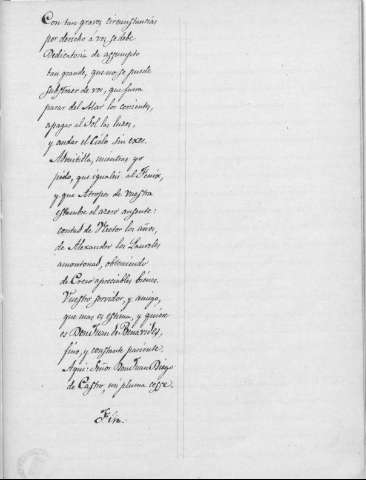 Con tan graves circunstancias
por derecho a vos se debe
Dedicatoria de assumpto
tan grande, que no se puede
substraer de vos, que fuera
parar del Mar las corrientes,
apagar al Sol las luzes,
y andar el Cielo sin exes.
Admitidla, mientras yo
pido, que igualeis al Fenix,
y que Atropos de vuestra
estambre el azero ausente:
contad de Nestor los años,
de Alexandro los Laureles
amontonad, obteniendo
de Creso apreciables bienes.
Vuestro servidor, y amigo,
que mas os estima, y quiere
es Don Juan de Benavides,
fino, y constante pariente.
Aqui: Señor Don Juan Diego
de Castro, mi pluma cesse.
Fin.